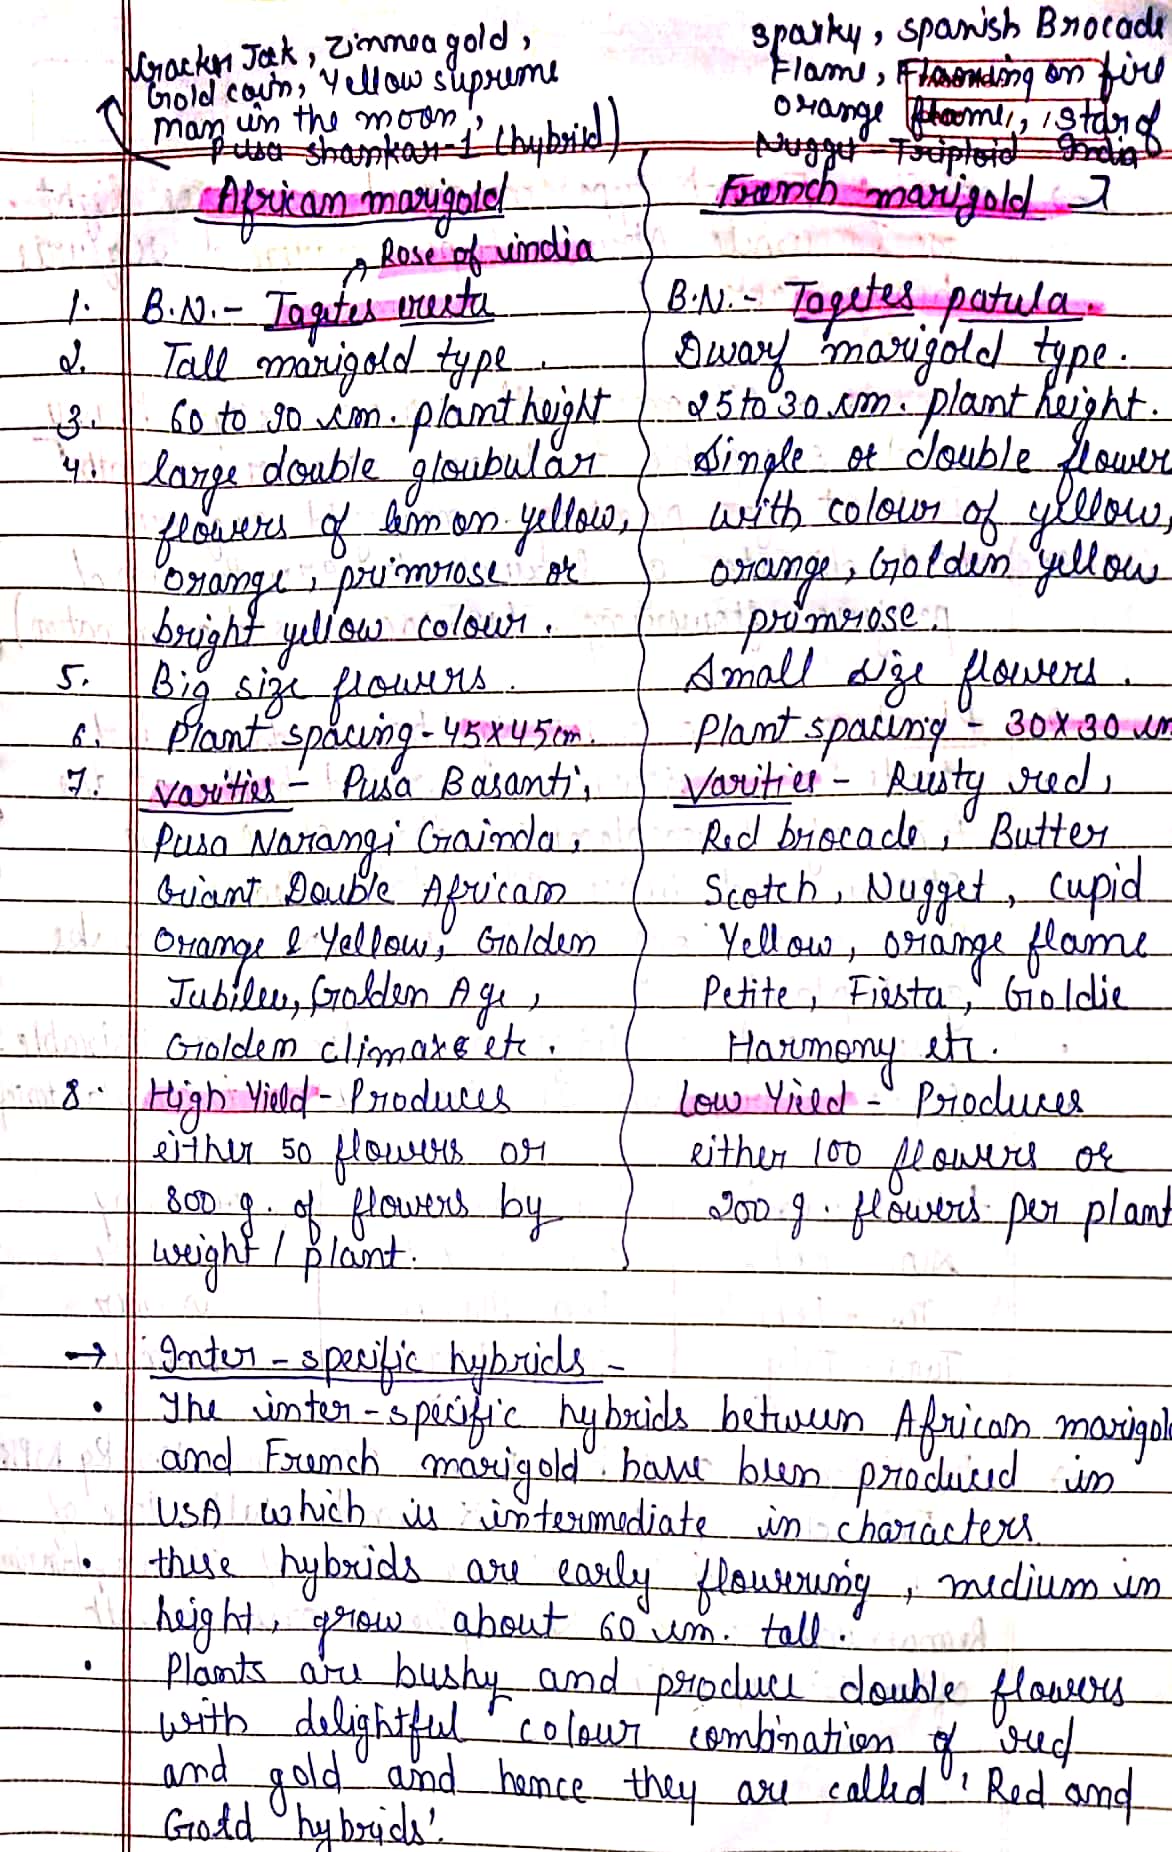 Cracker Jack, Zinnea gold,
Gold coin, Yellow supreme
man in the moon,
Pusa shankar-1 (hybrid)
African marigold
Rose of india
1. B.N. - Tagetes erecta
2. Tall marigold type.
3. 60 to 90 cm. plant height
4. large double gloubular
flowers of lemon yellow,
orange, primrose or
bright yellow colour.
5. Big size flowers.
6. Plant spacing - 45x45cm.
7. Varities - Pusa Basanti,
Pusa Narangi Gainda,
Griant Double African
Orange & Yellow, Golden
Jubilee, Golden Age,
Golden climaxe etc.
8. High Yield - Produces
either 50 flowers or
800 g. of flowers by
weight / plant.
Sparky, Spanish Brocade
Flame, on fire
orange flame, Star of
Nugget - Triploid India
French marigold
B.N. - Tagetes patula.
Dwarf marigold type.
25 to 30 cm. plant height.
Single or double flower
with colour of yellow,
orange, Golden yellow
primrose.
Small size flowers.
Plant spacing - 30x30 cm
Varities - Rusty red,
Red brocade, Butter
Scotch, Nugget, Cupid
Yellow, orange flame
Petite, Fiesta, Goldie
Harmony etc.
Low Yield - Produces
either 100 flowers or
200 g. flowers per plant
→ Inter-specific hybrids -
• The inter-specific hybrids between African marigold
and French marigold have been produced in
USA which is intermediate in characters
• these hybrids are early flowering, medium in
height, grow about 60 cm. tall.
• Plants are bushy and produce double flowers
with delightful colour combination of red
and gold and hence they are called 'Red and
Gold hybrids'.